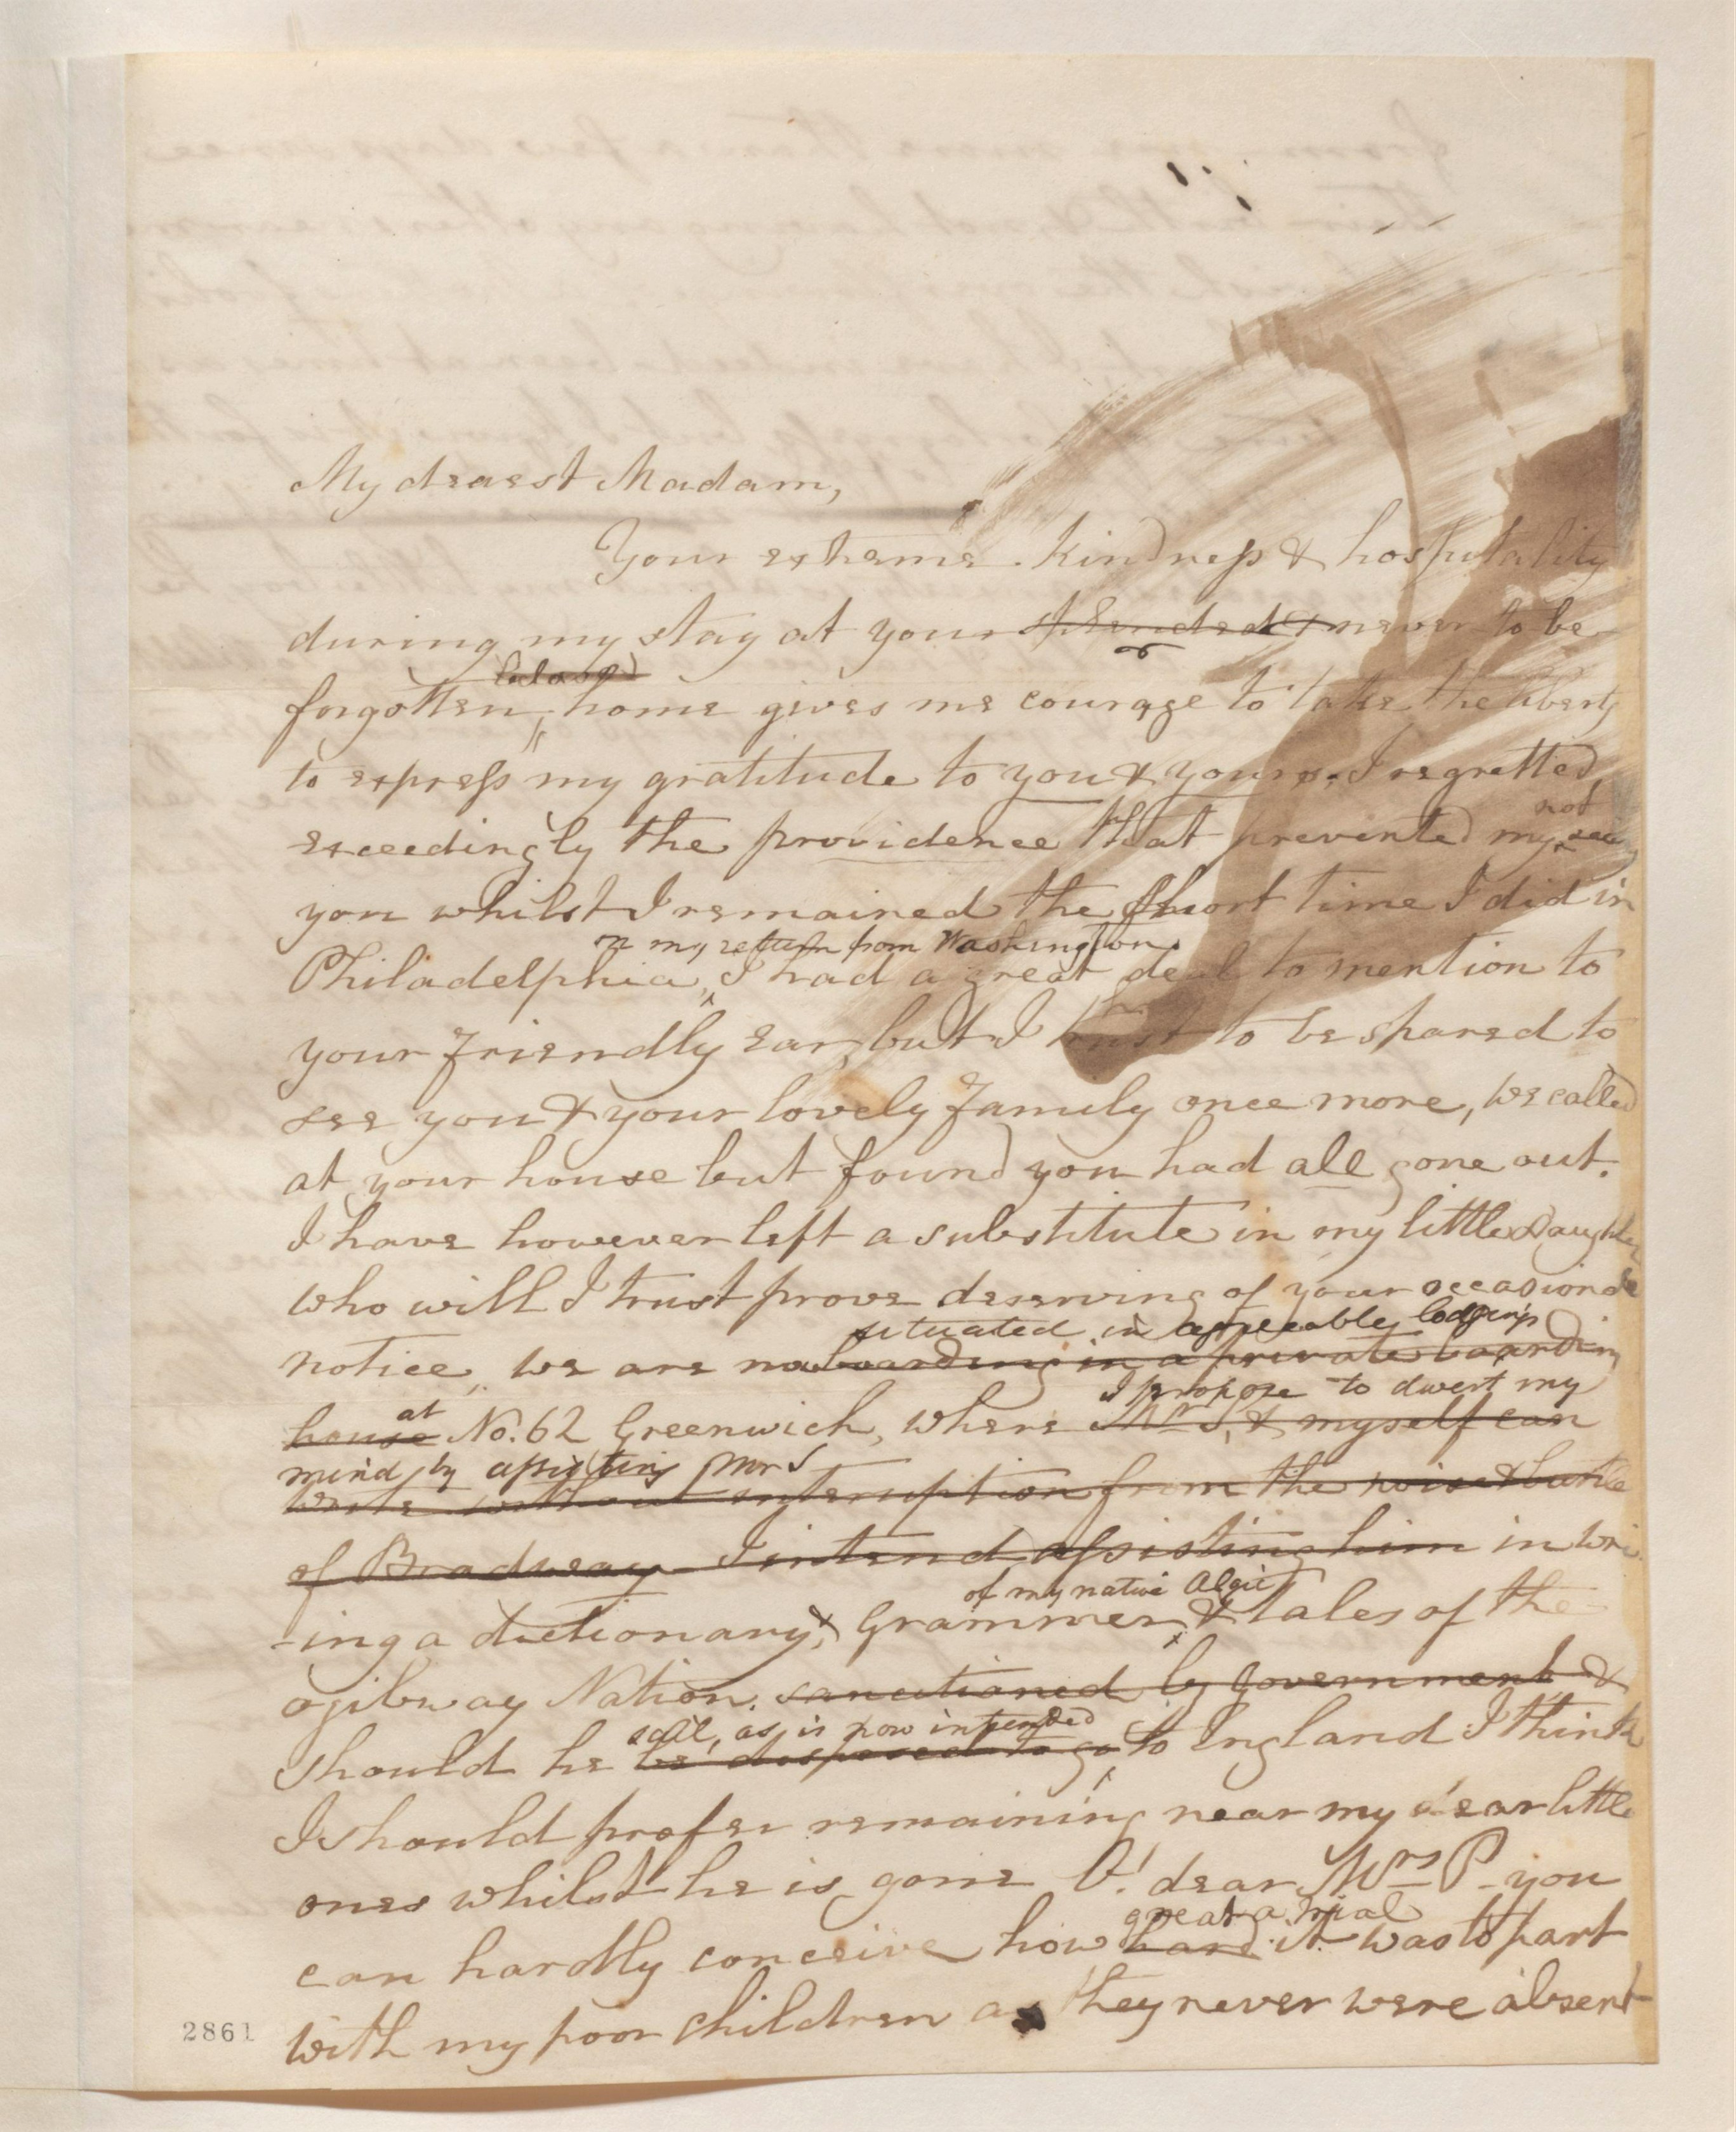 My dearest Madam,
Your extreme kindness & hospitality
during my stay at your splended & never to be
beloved
forgotten, home gives me courage to take the liberty
to express my gratitude to you & yours. I regretted
not
exceedingly the providence that prevented my seeing
you whilst I remained the short time I did in
on my return from Washington
Philadelphia, I had a great deal to mention to
your friendly ear, but I trust to be spared to
see you & your lovely family once more, we called
at your house but found you had all gone out.
I have however left a substitute in my little Daughter
who will I trust prove deserving of your occasional
situated in agreeable lodgings
notice, we are now boarding in a private boarding
at I propose to divert my
house No. 62 Greenwich, where Mr S, & myself can
mind, by assisting Mr S
write without interuption from the noise & bustle
of Bradway I intend assisting him in wri
of my native Algic
-ing a dictionary, & Grammer, & tales of the
ogibway Nation, sanctioned by government &
sail, as is now intended
Should he be disposed to go, to England I think
I should prefer remaining near my dear little
ones whilst he is gone O! dear Mrs P- you
great a trial
can hardly conceive how hard it was to part
with my poor children as they never were absent
2861